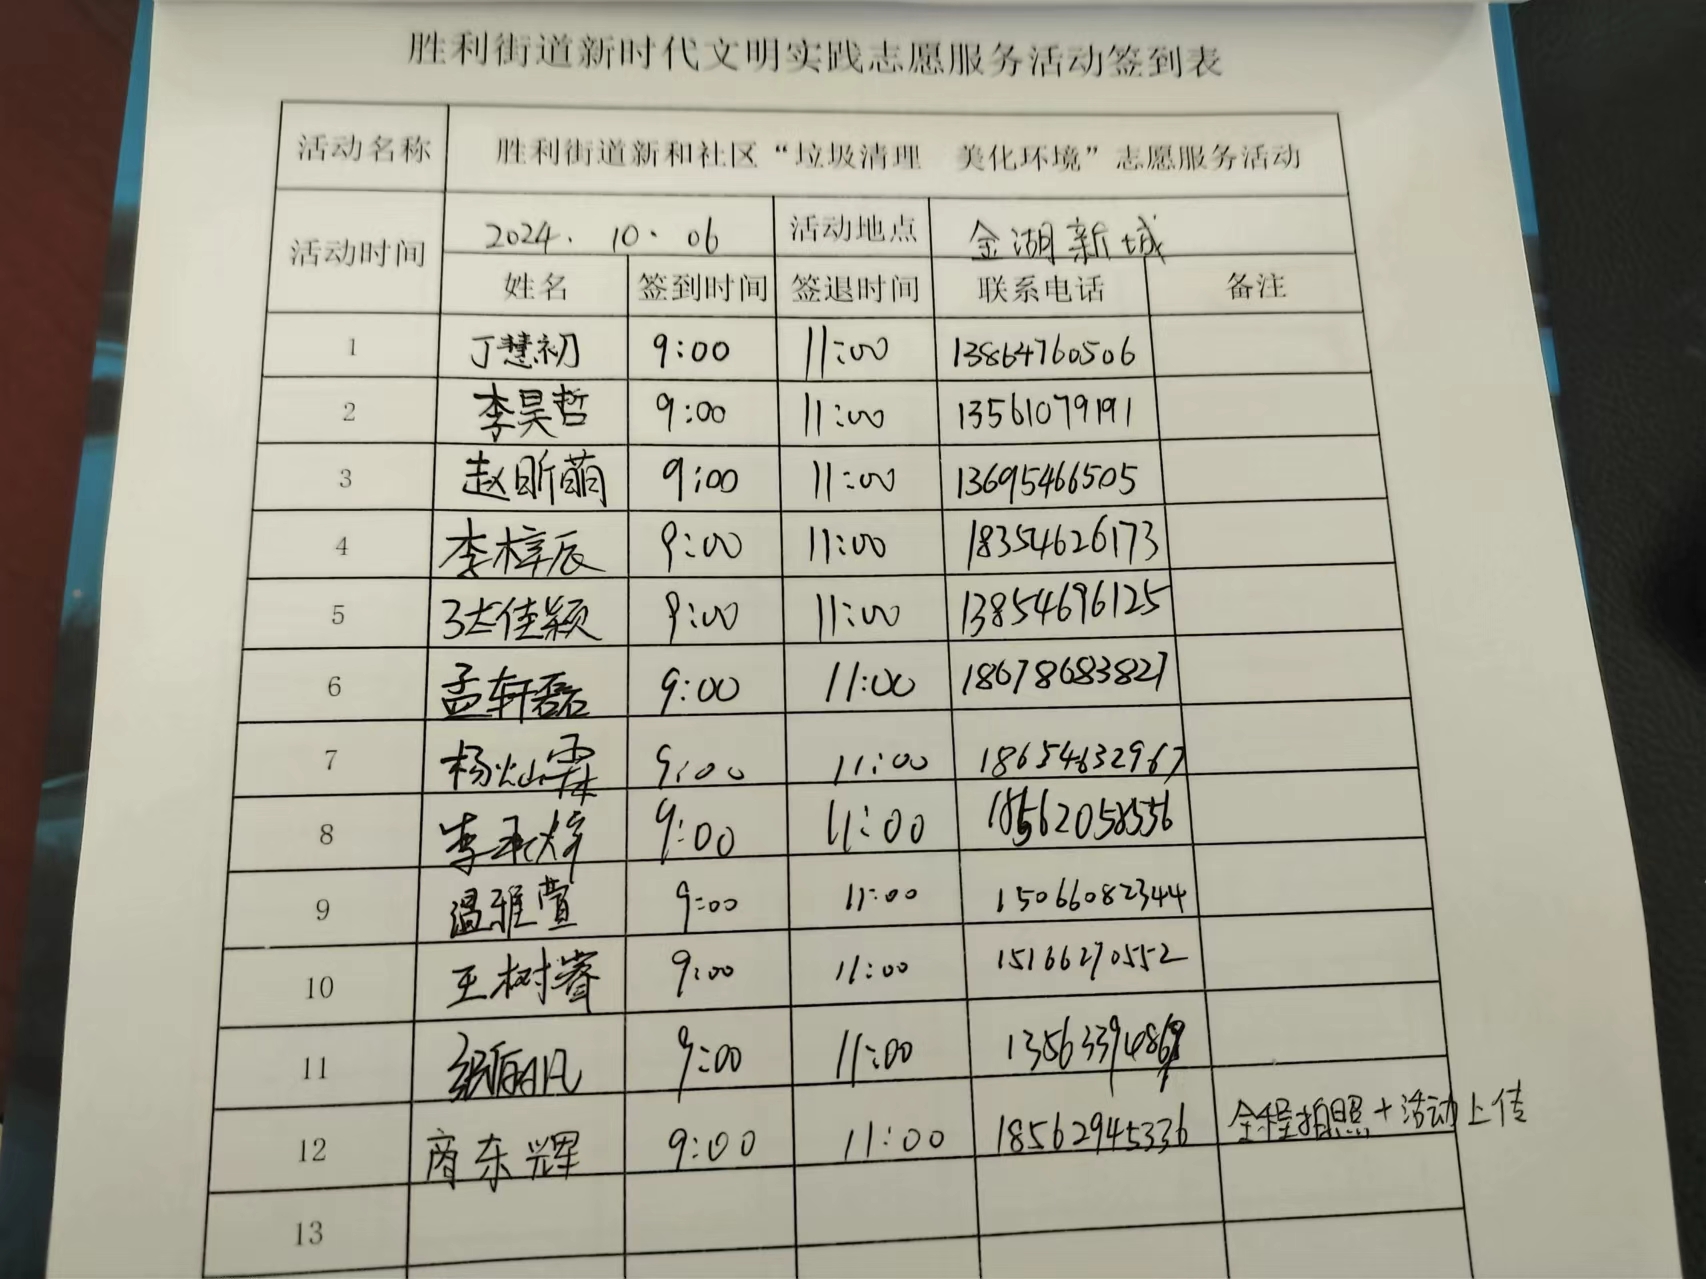 胜利街道新时代文明实践志愿服务活动签到表
活动名称 胜利街道新和社区“垃圾清理 美化环境”志愿服务活动
活动时间 2024.10.06 活动地点 金湖新城
姓名 签到时间 签退时间 联系电话 备注
1 丁慧初 9:00 11:00 13864760506
2 李昊哲 9:00 11:00 13561079191
3 赵昕萌 9:00 11:00 13695466505
4 李梓辰 9:00 11:00 18354626173
5 张佳颖 9:00 11:00 13854696125
6 孟轩磊 9:00 11:00 18678683827
7 杨灿霖 9:00 11:00 18654632967
8 9:00 11:00
9 温雅萱 9:00 11:00 15066082344
10 王树睿 9:00 11:00 15166270552
11 9:00 11:00
12 商东辉 9:00 11:00 18562945336 全程拍照+活动上传
13